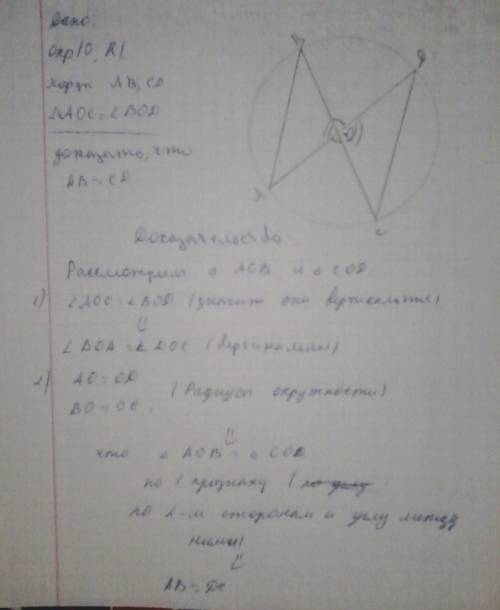 Дано:
Окр(O, R)
хорды AB, CD
∠AOC = ∠BOD
доказать, что
AB = CD.
B
D
O
A
C
Доказательство
Рассмотрим △ AOB и △ COD
1) ∠AOC = ∠BOD (значит они вертикальные)
⇓
∠BOA = ∠DOC (вертикальны)
2) AO = OD
BO = OC. (Радиусы окружности)
⇓
что △ AOB = △ COD
по 1 признаку (по углу
по 2-м сторонам и углу между
ними)
⇓
AB = DC